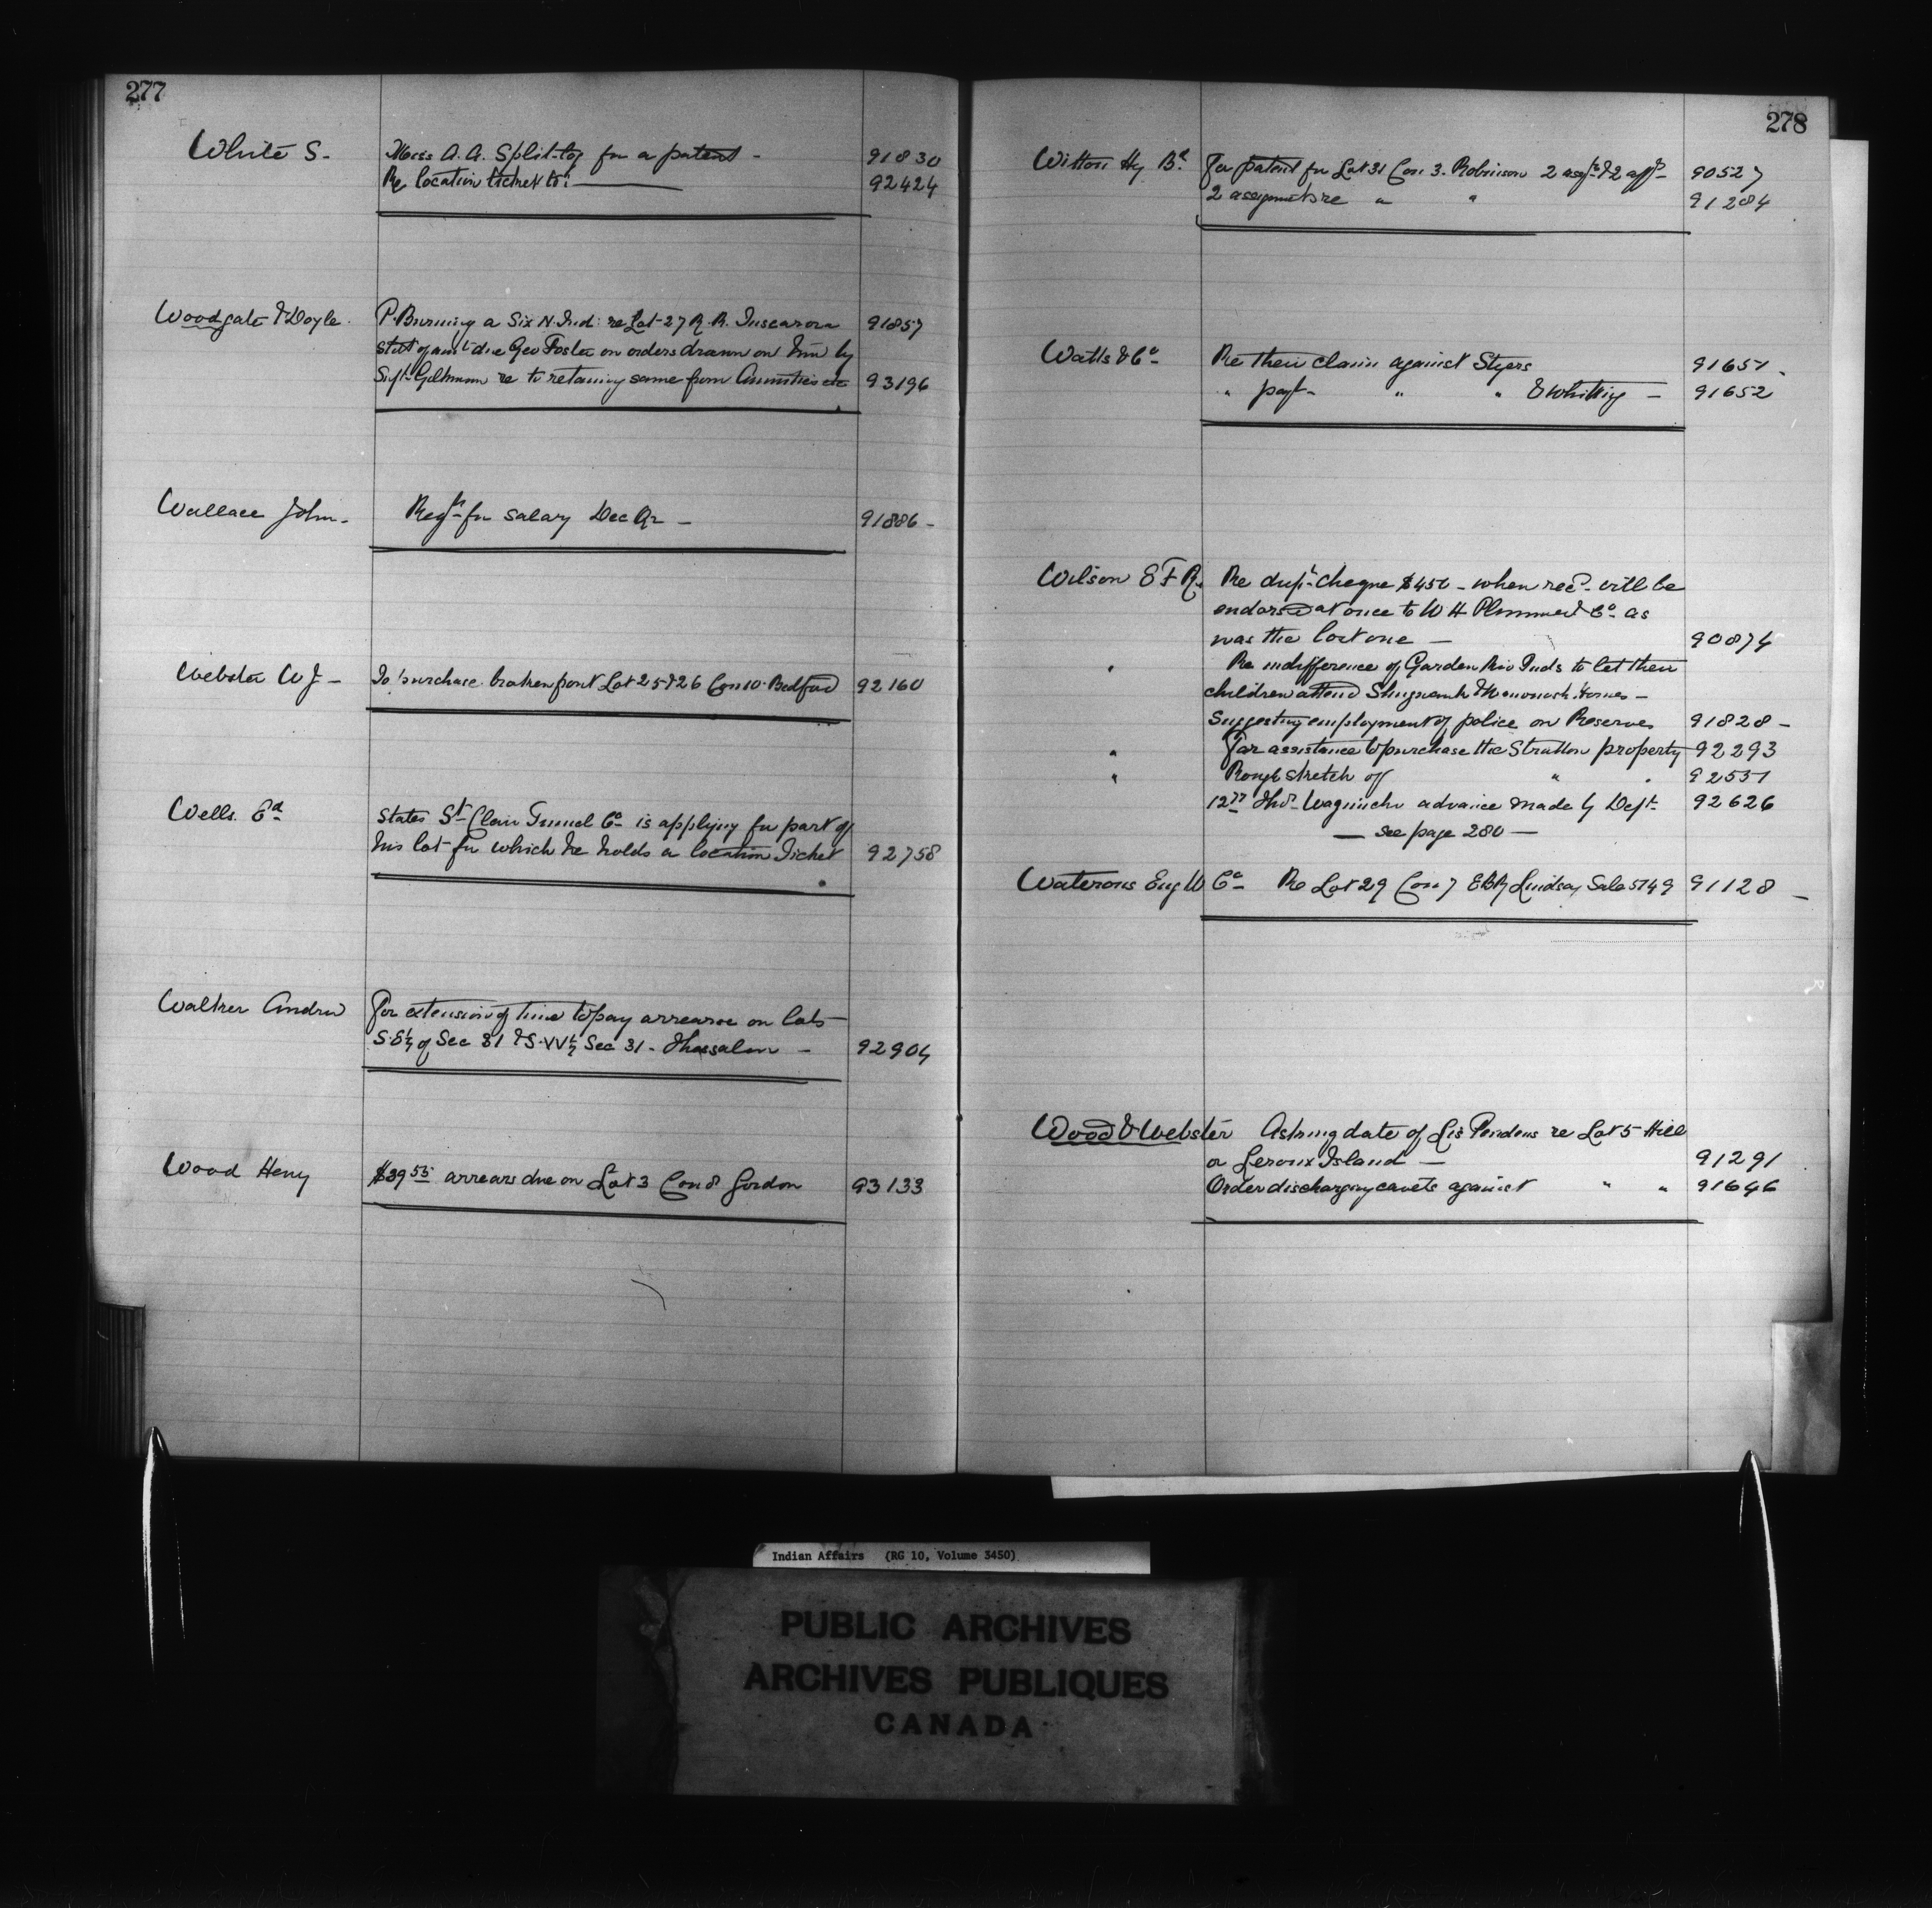 277
White S. Miss A. A. Split-log for a patent - 91830
Re location ticket to: 92424
Woodgate & Doyle. P. Burning a Six N. Ind: re Lot 27 R. R. Tuscarora 91857
Statt of amt due Geo Foster on orders drawn on him by
Supt Gilkison re to retaining same from Annuities etc 93196
Wallace John. Reqn for salary Dec Qr - 91886 -
Webster W J - To purchase broken front Lot 25 & 26 Con 10 Bedford 92160
Wells Ed States St Clair Tunnel Co is applying for part of
his lot for which he holds a location Ticket 92758
Walker Andrew For extension of time to pay arrears on lots
S.E¼ of Sec 31 & S.W¼ Sec 31 - Thessalon - 92904
Wood Henry $39.55 arrears due on Lot 3 Con 8 Gordon 93133
278
Witton Hy Bd For patent for Lot 31 Con 3. Robinson 2 asgts & 2 affts 90527
2 assignmts re " " 91284
Watts & Co Re their claim against Styers 91651 -
" payt " " & Whiting - 91652
Wilson E F R. Re dupt cheque $450 - when recd will be
endorsed at once to W H Plummer & Co as
was the lost one - 90874
" Re indifference of Garden Riv Inds to let their
children attend Shingwauk & Wawanosh Homes -
Suggesting employment of police on Reserves 91828 -
" For assistance to purchase the Stratton property 92293
" Rough sketch of " " 92531
Thos Waguinche advance made by Dept 92626
- see page 280 -
Waterous Eng W Co Re Lot 29 Con 7 EBR Lindsay Sale 5749 91128 -
Wood & Webster Asking date of Lis Pendens re Lot 5 Hill
or Leroux Island - 91291
Order discharging caveats against " " 91646
Indian Affairs (RG 10, Volume 3450)
PUBLIC ARCHIVES
ARCHIVES PUBLIQUES
CANADA